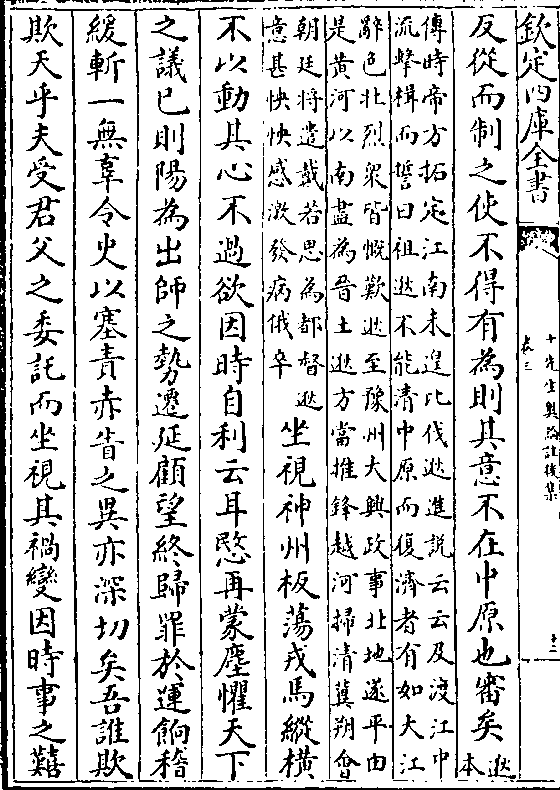 欽定四庫全書
十先生奧論註後集
卷三
十二
反從而制之使不得有為則其意不在中原也審矣逖本
傳時帝方拓定江南未遑北伐逖進說云云及渡江中
流擊楫而誓曰祖逖不能清中原而復濟者有如大江
辭色壯烈衆皆慨歎逖至豫州大興政事北地遂平由
是黄河以南盡為晉土逖方當推鋒越河掃清冀朔會
朝廷將遣戴若思為都督逖
意甚怏怏感激發病俄卒
坐視神州板蕩戎馬縱横
不以動其心不過欲因時自利云耳愍再蒙塵懼天下
之議已則陽為出師之勢遷延顧望終歸罪於運餉稽
緩斬一無辜令史以塞責赤眚之異亦深切矣吾誰欺
欺天乎夫受君父之委託而坐視其禍變因時事之囏